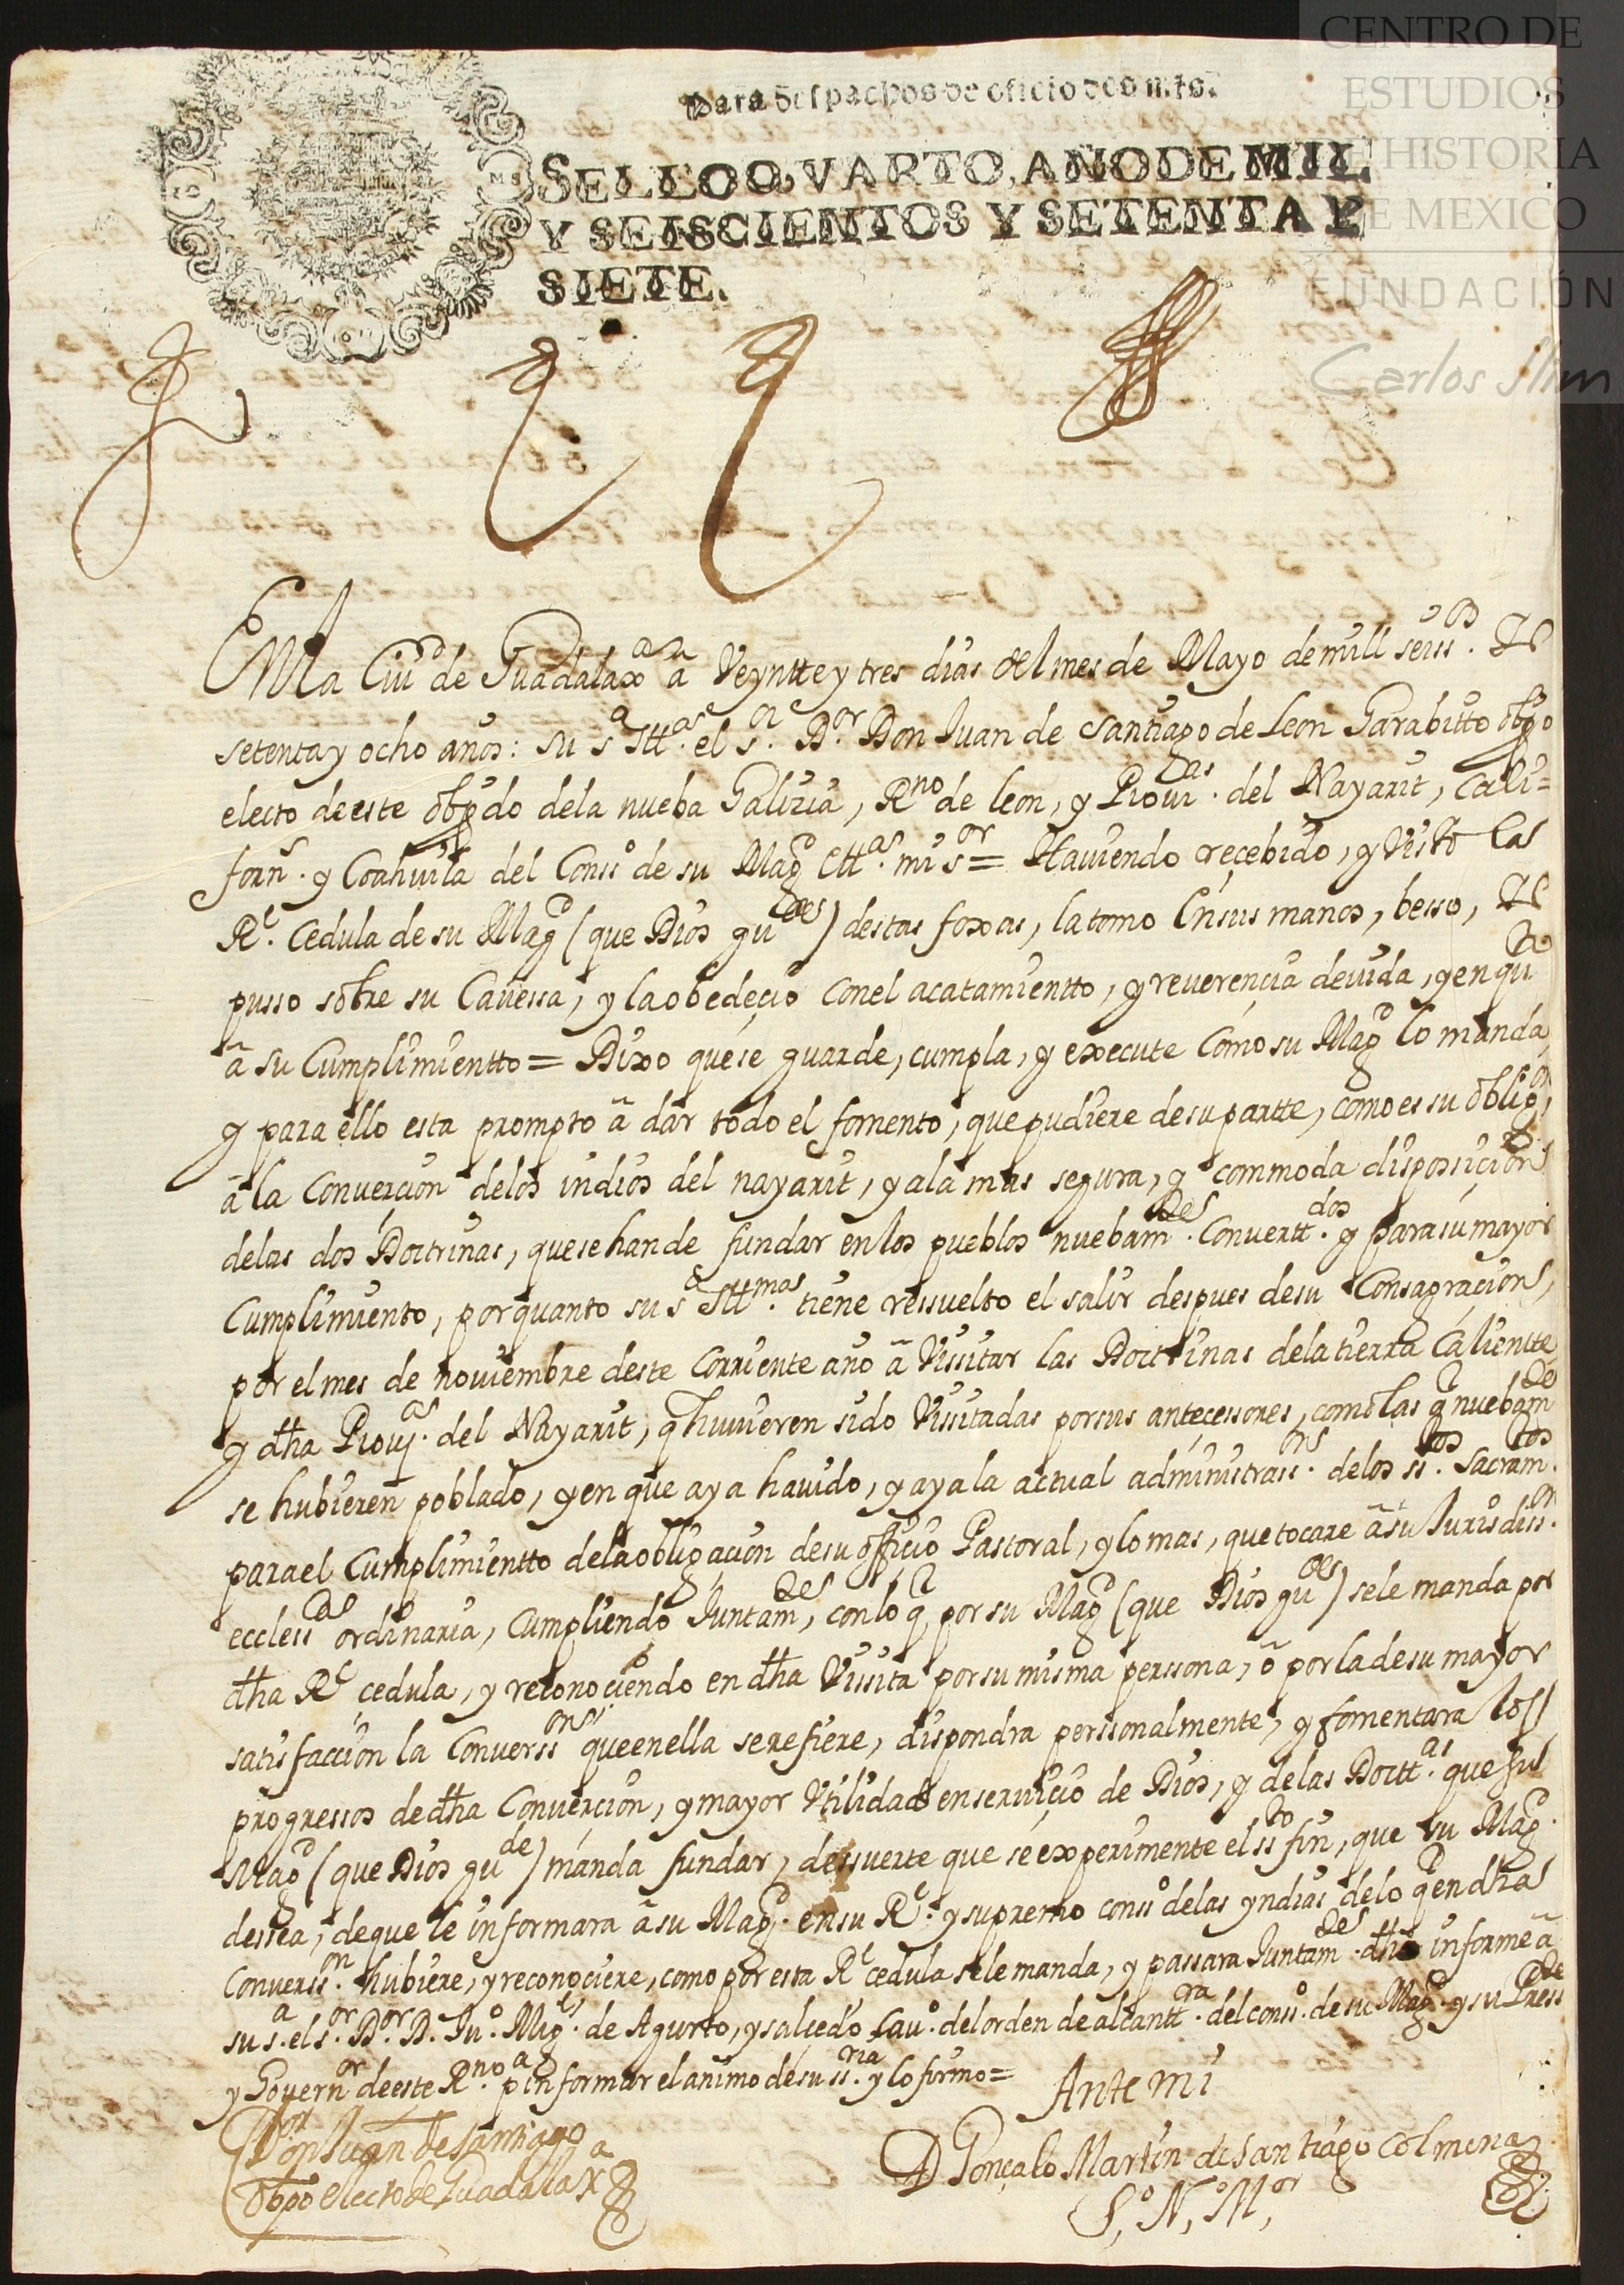 CENTRO DE
ESTUDIOS
DE HISTORIA
DE MEXICO
FUNDACIÓN
Carlos Slim
Para despachos de oficio dos mrs.
SELLO QVARTO, AÑO DE MIL
Y SEISCIENTOS Y SETENTA Y
SIETE.
En la Ciud de Guadalaxa a Veyntte y tres dias del mes de Mayo de mill seiss.
setenta y ocho años: su sa Ittma. el sr. Dor. Don Juan de Santiago de Leon Garabitto obpo
electo de este obpdo dela nueba Galizia, Rno de leon, y Provias. del Nayarit, Cali=
forna. y Coahuila del Conso de su Magd mi sor = Haviendo reçebido, y Visto las
Rl. Cedula de su Magd (que Dios gude) destas foxas, la tomo En sus manos, besso,
pusso sobre su Cavessa, y la obedeçio con el acatamientto, y reverençia devida, y en qto
a su Cumplimientto = Dixo que se guarde, cumpla, y execute Como su Magd lo manda,
y para ello esta prompto a dar todo el fomento, que pudiere de su partte, como es su obligon,
a la Converçion delos indios del nayarit, y a la mas segura, y commoda disposiçion
delas dos Doctrinas, que se han de fundar en los pueblos nuebamte. Convertt.dos y para su mayor
Cumplimiento, por quanto su sa Ittma. tiene ressuelto el salir despues de su Consagracion,
por el mes de noviembre deste Corriente año a Vissitar las Doctrinas dela tierra Calientte
y dha Provias. del Nayarit, q huvieren sido Vissitadas por sus anteçessores, como las q nuebamte
se hubieren poblado, y en que aya havido, y aya la actual administrass.on delos stos. Sacramtos.
para el Cumplimientto dela obligaçion de su offiçio Pastoral, y lo mas, que tocare a su Jurisdiss.on
ecclessca ordinaria, Cumpliendo Juntamte, con lo q por su Magd (que Dios gude) se le manda por
dha Rl cedula, y reconoçiendo en dha Vissita por su misma perssona, o por la de su mayor
satisfaccion la Converss.on que en ella se refiere, dispondra perssonalmente, y fomentara los
progressos de dha Converçion, y mayor Utilidad en serviçio de Dios, y delas Doctt.as que su
Magd (que Dios gude) manda fundar, de suerte que se experimente el sto fin, que su Magd.
dessea, de que le informara a su Magd. en su Rl. y supremo conso delas yndias delo q en dha
Converss.on hubiere, y reconoçiere, como por esta Rl cedula se le manda, y passara Juntamte. dho informe a
su sa. el sor. Dor. D. Juo. Migl. de Agurto, y salcedo Cavo. del orden de alcantra. del conso. de su Magd. y su Presste
y Governor de este Rno. pa informar el animo de su ssria. y lo firmo =
Ante mi
Don Juan de Santiago
Obpo electo de Guadalaxa
D Gonçalo Martin de Santiago Colmena
So, No, Mor,